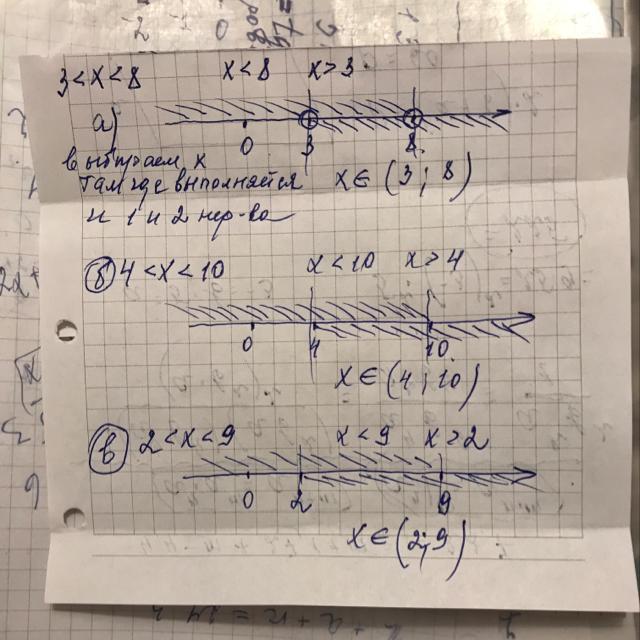 3 < x < 8 x < 8 x > 3
а)
0 3 8
выбираем x
там где выполняется x ∈ (3; 8)
и 1 и 2 нер-ва
б) 4 < x < 10 x < 10 x > 4
0 4 10
x ∈ (4; 10)
в) 2 < x < 9 x < 9 x > 2
0 2 9
x ∈ (2; 9)